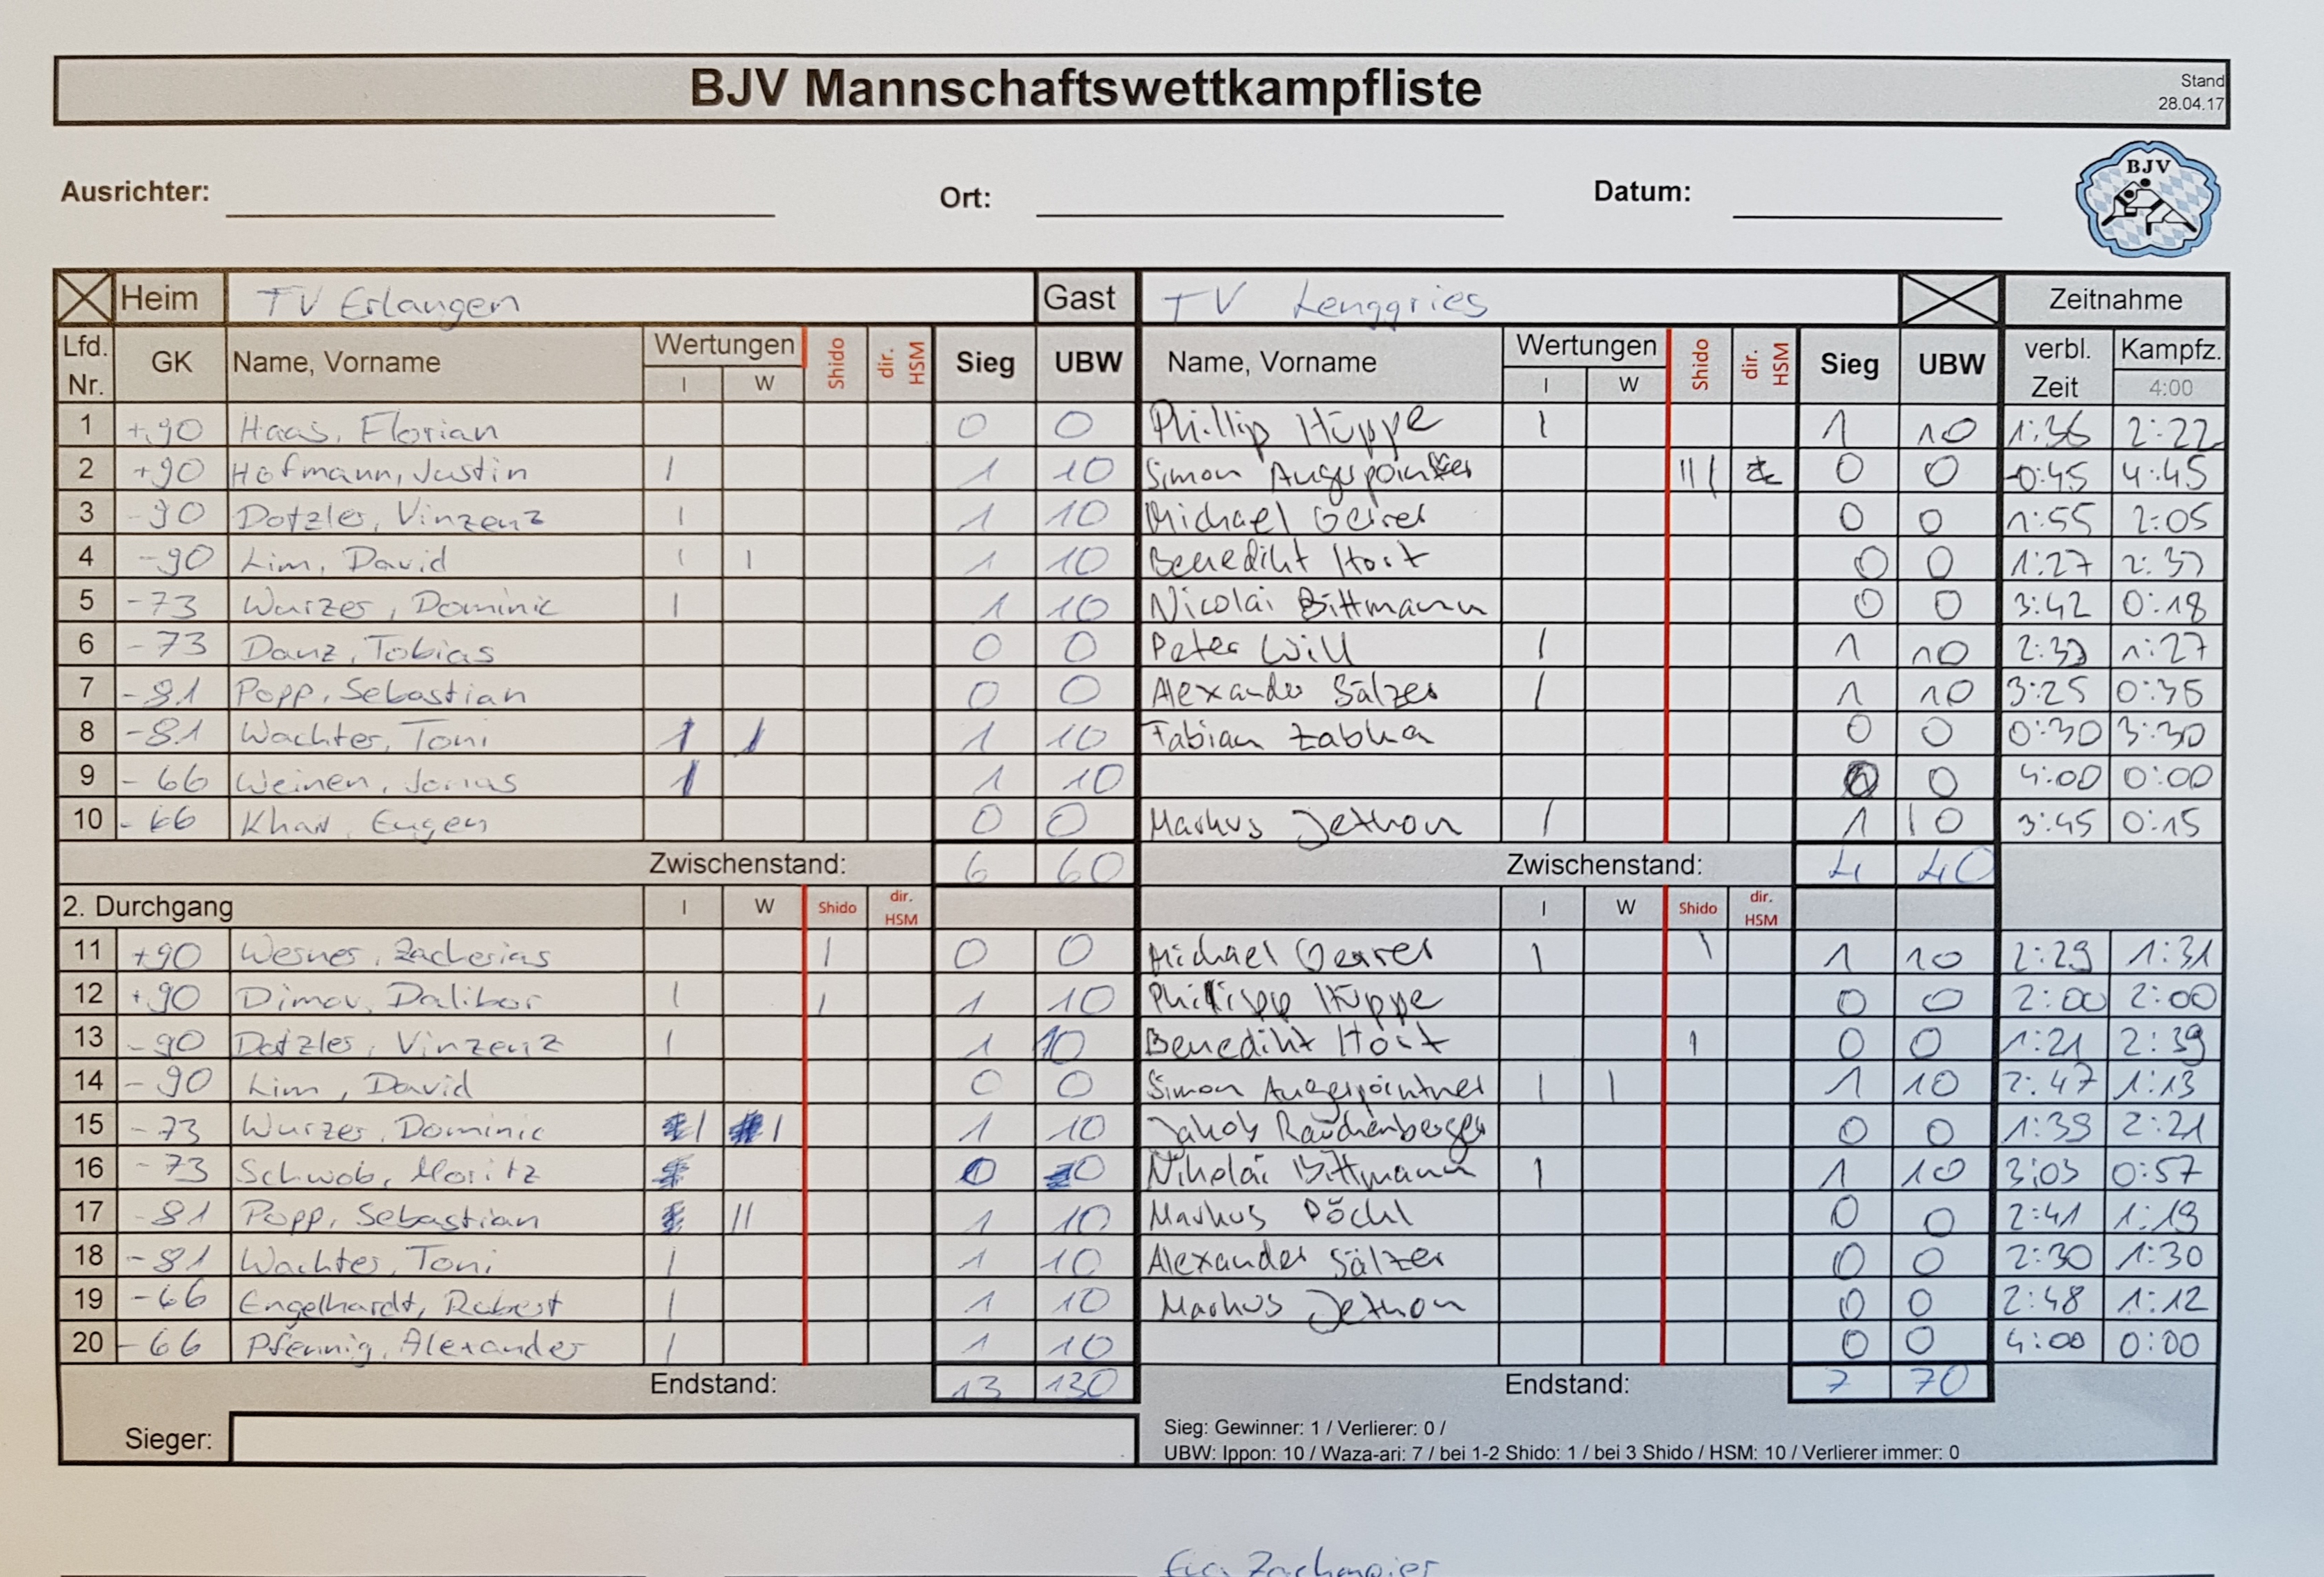 BJV Mannschaftswettkampfliste
Stand
28.04.17
Ausrichter: Ort: Datum:
BJV
Heim TV Erlangen Gast TV Lenggries Zeitnahme
Lfd. Nr. GK Name, Vorname Wertungen I W Shido dir. HSM Sieg UBW Name, Vorname Wertungen I W Shido dir. HSM Sieg UBW verbl. Zeit Kampfz. 4:00
1 +90 Haas, Florian 0 0 Phillip Hüppe I 1 10 1:36 2:22
2 +90 Hofmann, Justin I 1 10 Simon III 0 0 -0:45 4:45
3 -90 Dotzler, Vinzenz I 1 10 Michael 0 0 1:55 2:05
4 -90 Lim, David I I 1 10 Benedikt Hört 0 0 1:27 2:33
5 -73 Wurzer, Dominic I 1 10 Nicolai Bittmann 0 0 3:42 0:18
6 -73 Danz, Tobias 0 0 Peter Will I 1 10 2:33 1:27
7 -81 Popp, Sebastian 0 0 Alexander Sälzer I 1 10 3:25 0:35
8 -81 Wachter, Toni I I 1 10 Fabian Zabka 0 0 0:30 3:30
9 -66 Weinen, Jonas I 1 10 0 0 4:00 0:00
10 -66 Eugen 0 0 Markus Jethon I 1 10 3:45 0:15
Zwischenstand: 6 60 Zwischenstand: 4 40
2. Durchgang I W Shido dir. HSM I W Shido dir. HSM
11 +90 Wesner, Zacherias I 0 0 Michael I I 1 10 2:29 1:31
12 +90 Dimov, Dalibor I I 1 10 Philipp Hüppe 0 0 2:00 2:00
13 -90 Dotzler, Vinzenz I 1 10 Benedikt Hört I 0 0 1:21 2:39
14 -90 Lim, David 0 0 Simon Augerpointner I I 1 10 2:47 1:13
15 -73 Wurzer, Dominic I I 1 10 Jakob Rauchenberger 0 0 1:39 2:21
16 -73 Schwob, Moritz 0 0 Nikolai Bittmann I 1 10 3:03 0:57
17 -81 Popp, Sebastian II 1 10 Markus Pöckl 0 0 2:41 1:19
18 -81 Wachter, Toni I 1 10 Alexander Sälzer 0 0 2:30 1:30
19 -66 Engelhardt, Robert I 1 10 Markus Jethon 0 0 2:48 1:12
20 -66 Pfennig, Alexander I 1 10 0 0 4:00 0:00
Endstand: 13 130 Endstand: 7 70
Sieger:
Sieg: Gewinner: 1 / Verlierer: 0 /
UBW: Ippon: 10 / Waza-ari: 7 / bei 1-2 Shido: 1 / bei 3 Shido / HSM: 10 / Verlierer immer: 0